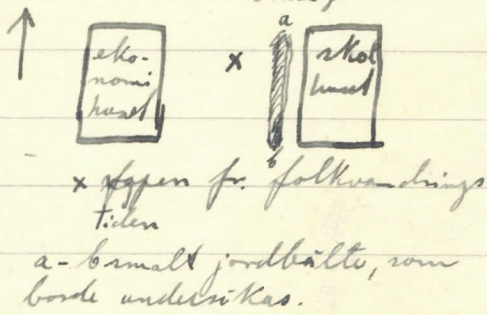 a
eko-
nomi
huset
x
skol
huset
b
x fr. folkvandrings
tiden
a-b smalt jordbälte, som
borde undersökas.